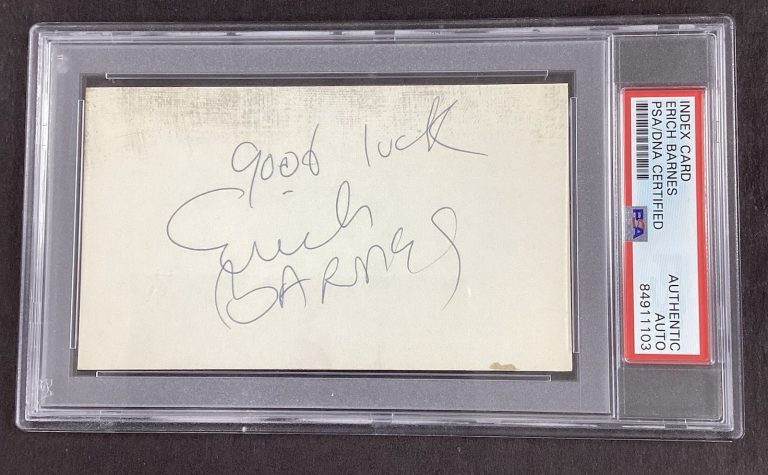 good luck
Erich
BARNES
INDEX CARD
ERICH BARNES
PSA/DNA CERTIFIED
PSA
AUTHENTIC
AUTO
84911103